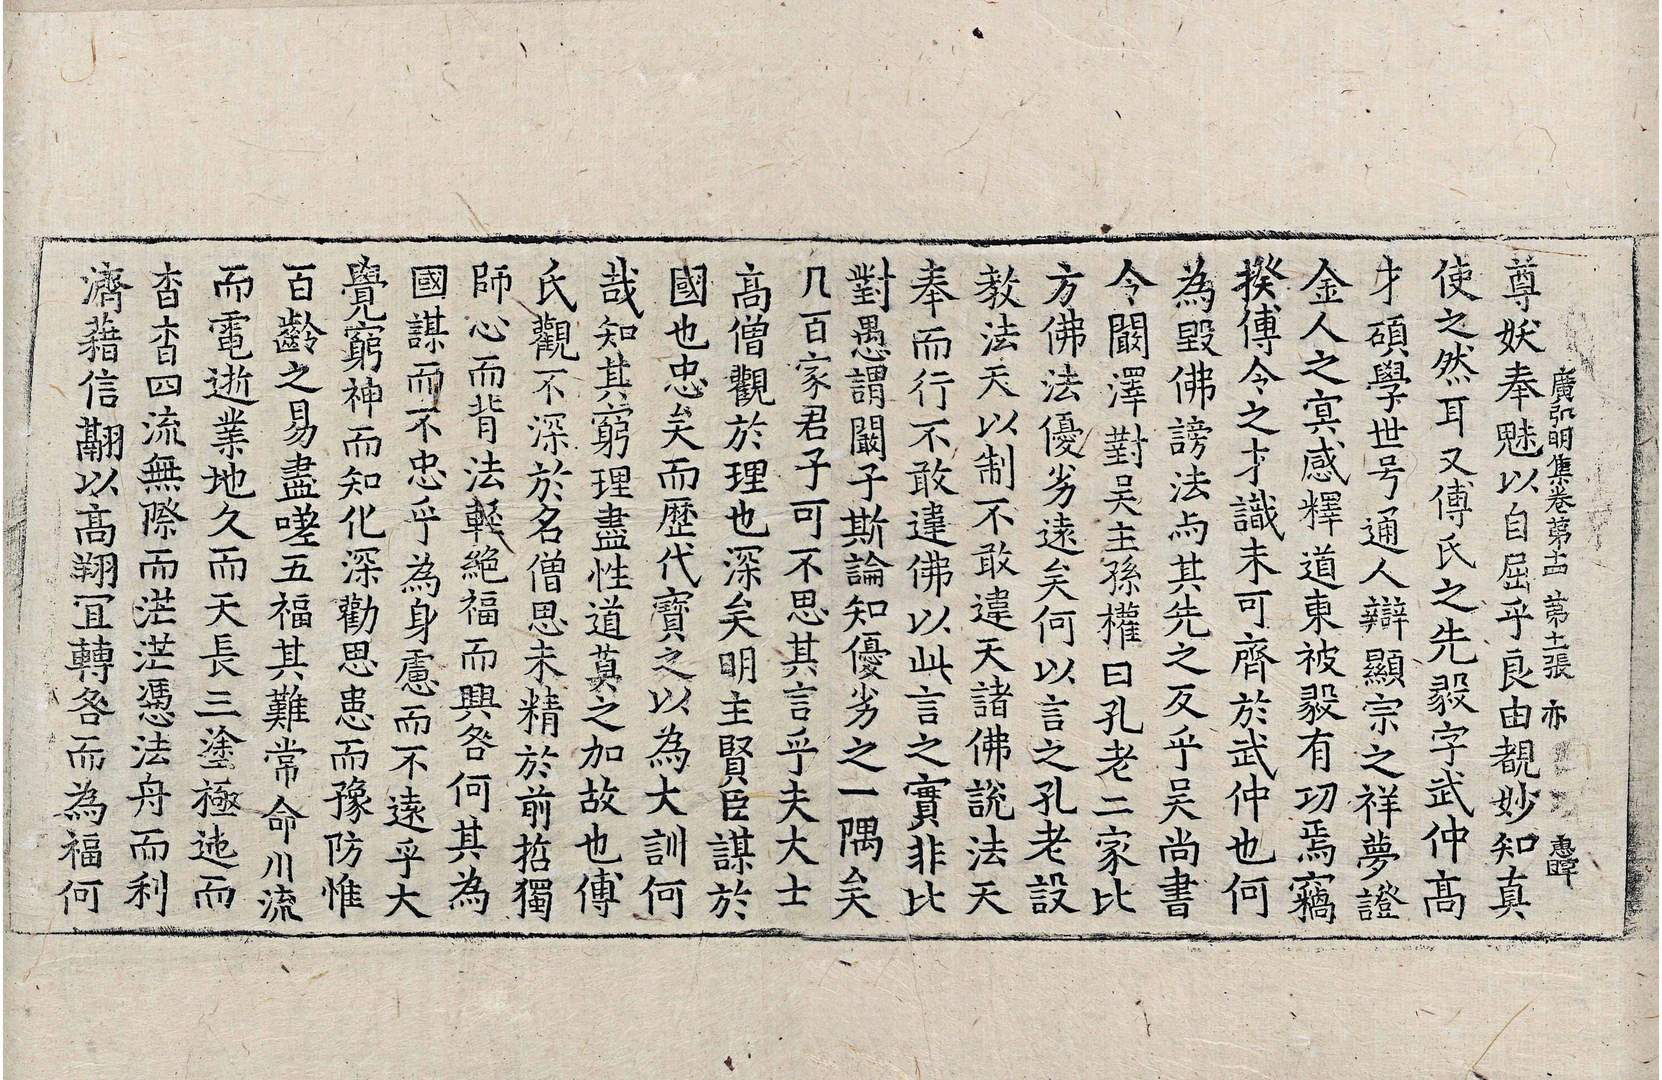 廣弘明集卷第十四 第十二張 亦 惠曄
尊妖奉魅以自屈乎良由覩妙知真
使之然耳又傅氏之先毅字武仲高
才碩學世号通人辯顯宗之祥夢證
金人之㝠感釋道東被毅有㓛焉竊
揆傅令之才識未可齊於武仲也何
為毀佛謗法与其先之反乎吳尚書
令闞澤對吳主孫權曰孔老二家比
方佛法優劣遠矣何以言之孔老設
教法天以制不敢違天諸佛說法天
奉而行不敢違佛以此言之實非比
對愚謂闞子斯論知優劣之一隅矣
凡百家君子可不思其言乎夫大士
高僧觀於理也深矣明主賢臣謀於
國也忠矣而歷代寶之以為大訓何
哉知其窮理盡性道莫之加故也傅
氏觀不深於名僧思未精於前哲獨
師心而背法輕絶福而興咎何其為
國謀而不忠乎為身慮而不遠乎大
覺窮神而知化深勸思患而豫防惟
百齡之易盡嗟五福其難常命川流
而電逝業地久而天長三塗極迆而
杳杳四流無際而茫茫憑法舟而利
濟藉信翮以高翔冝轉咎而為福何